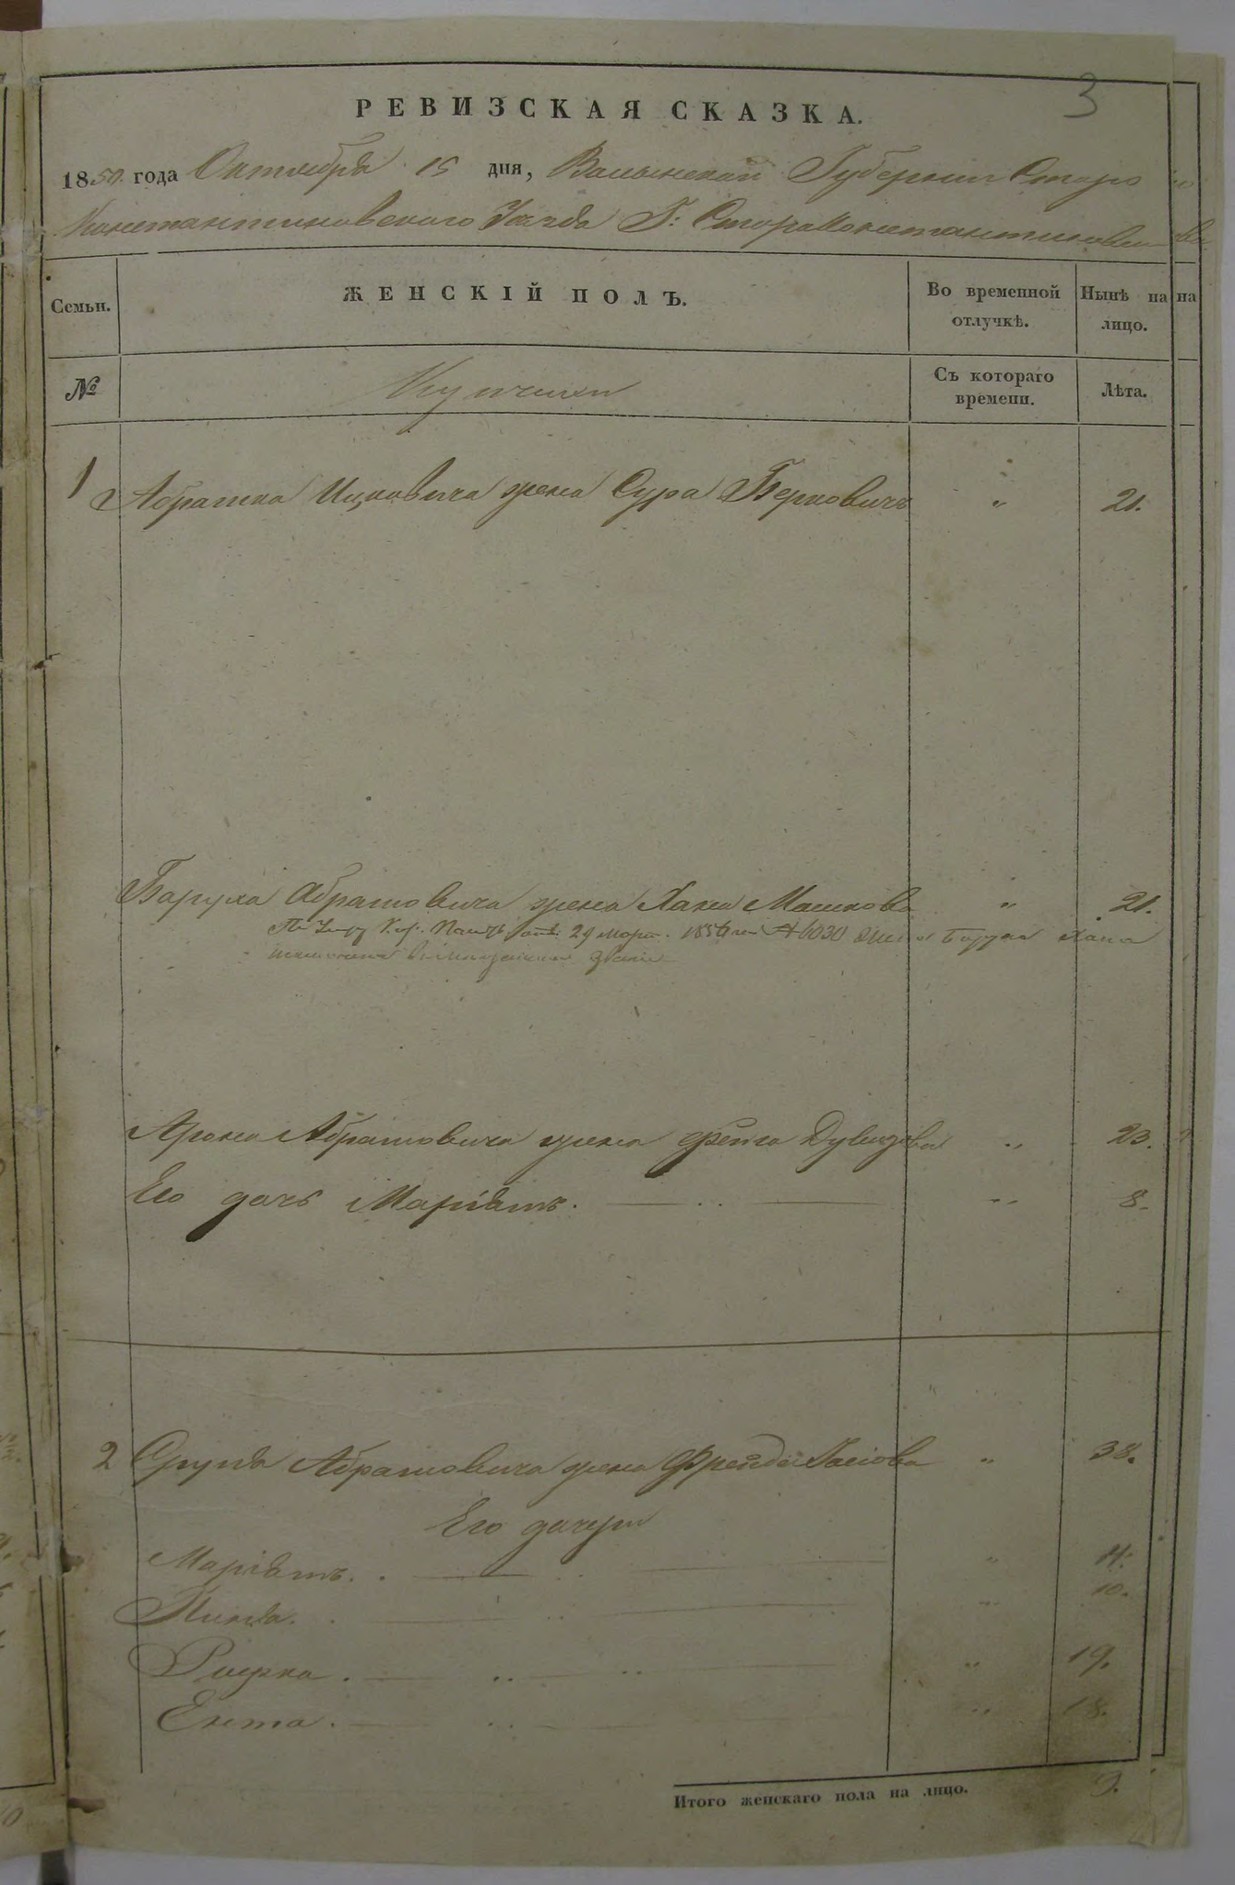 3
РЕВИЗСКАЯ СКАЗКА.
1850 года Октября 15 дня, Волынской Губернии Старо
Константиновского Уезда Г: Староконстантинова
Семьи.
ЖЕНСКІЙ ПОЛЪ.
Во временной отлучкѣ.
Нынѣ на лицо.
№
Купчихи
Съ котораго времени.
Лѣта.
1 Абрамка Ицковича жена Сура Берковичъ " 21.
Баруха Абрамовича жена Хана Машкова " 21.
29 1854 № 6030 Барух Хана
Арона Абрамовича жена Фейга Дувидова " 23.
Его дочь Маріямъ. " 8.
2 Сруля Абрамовича жена Фрейда " 38.
Его дочери
Маріямъ. "
" 10.
" 19.
Ента. " 18.
Итого женскаго пола на лицо. 9.